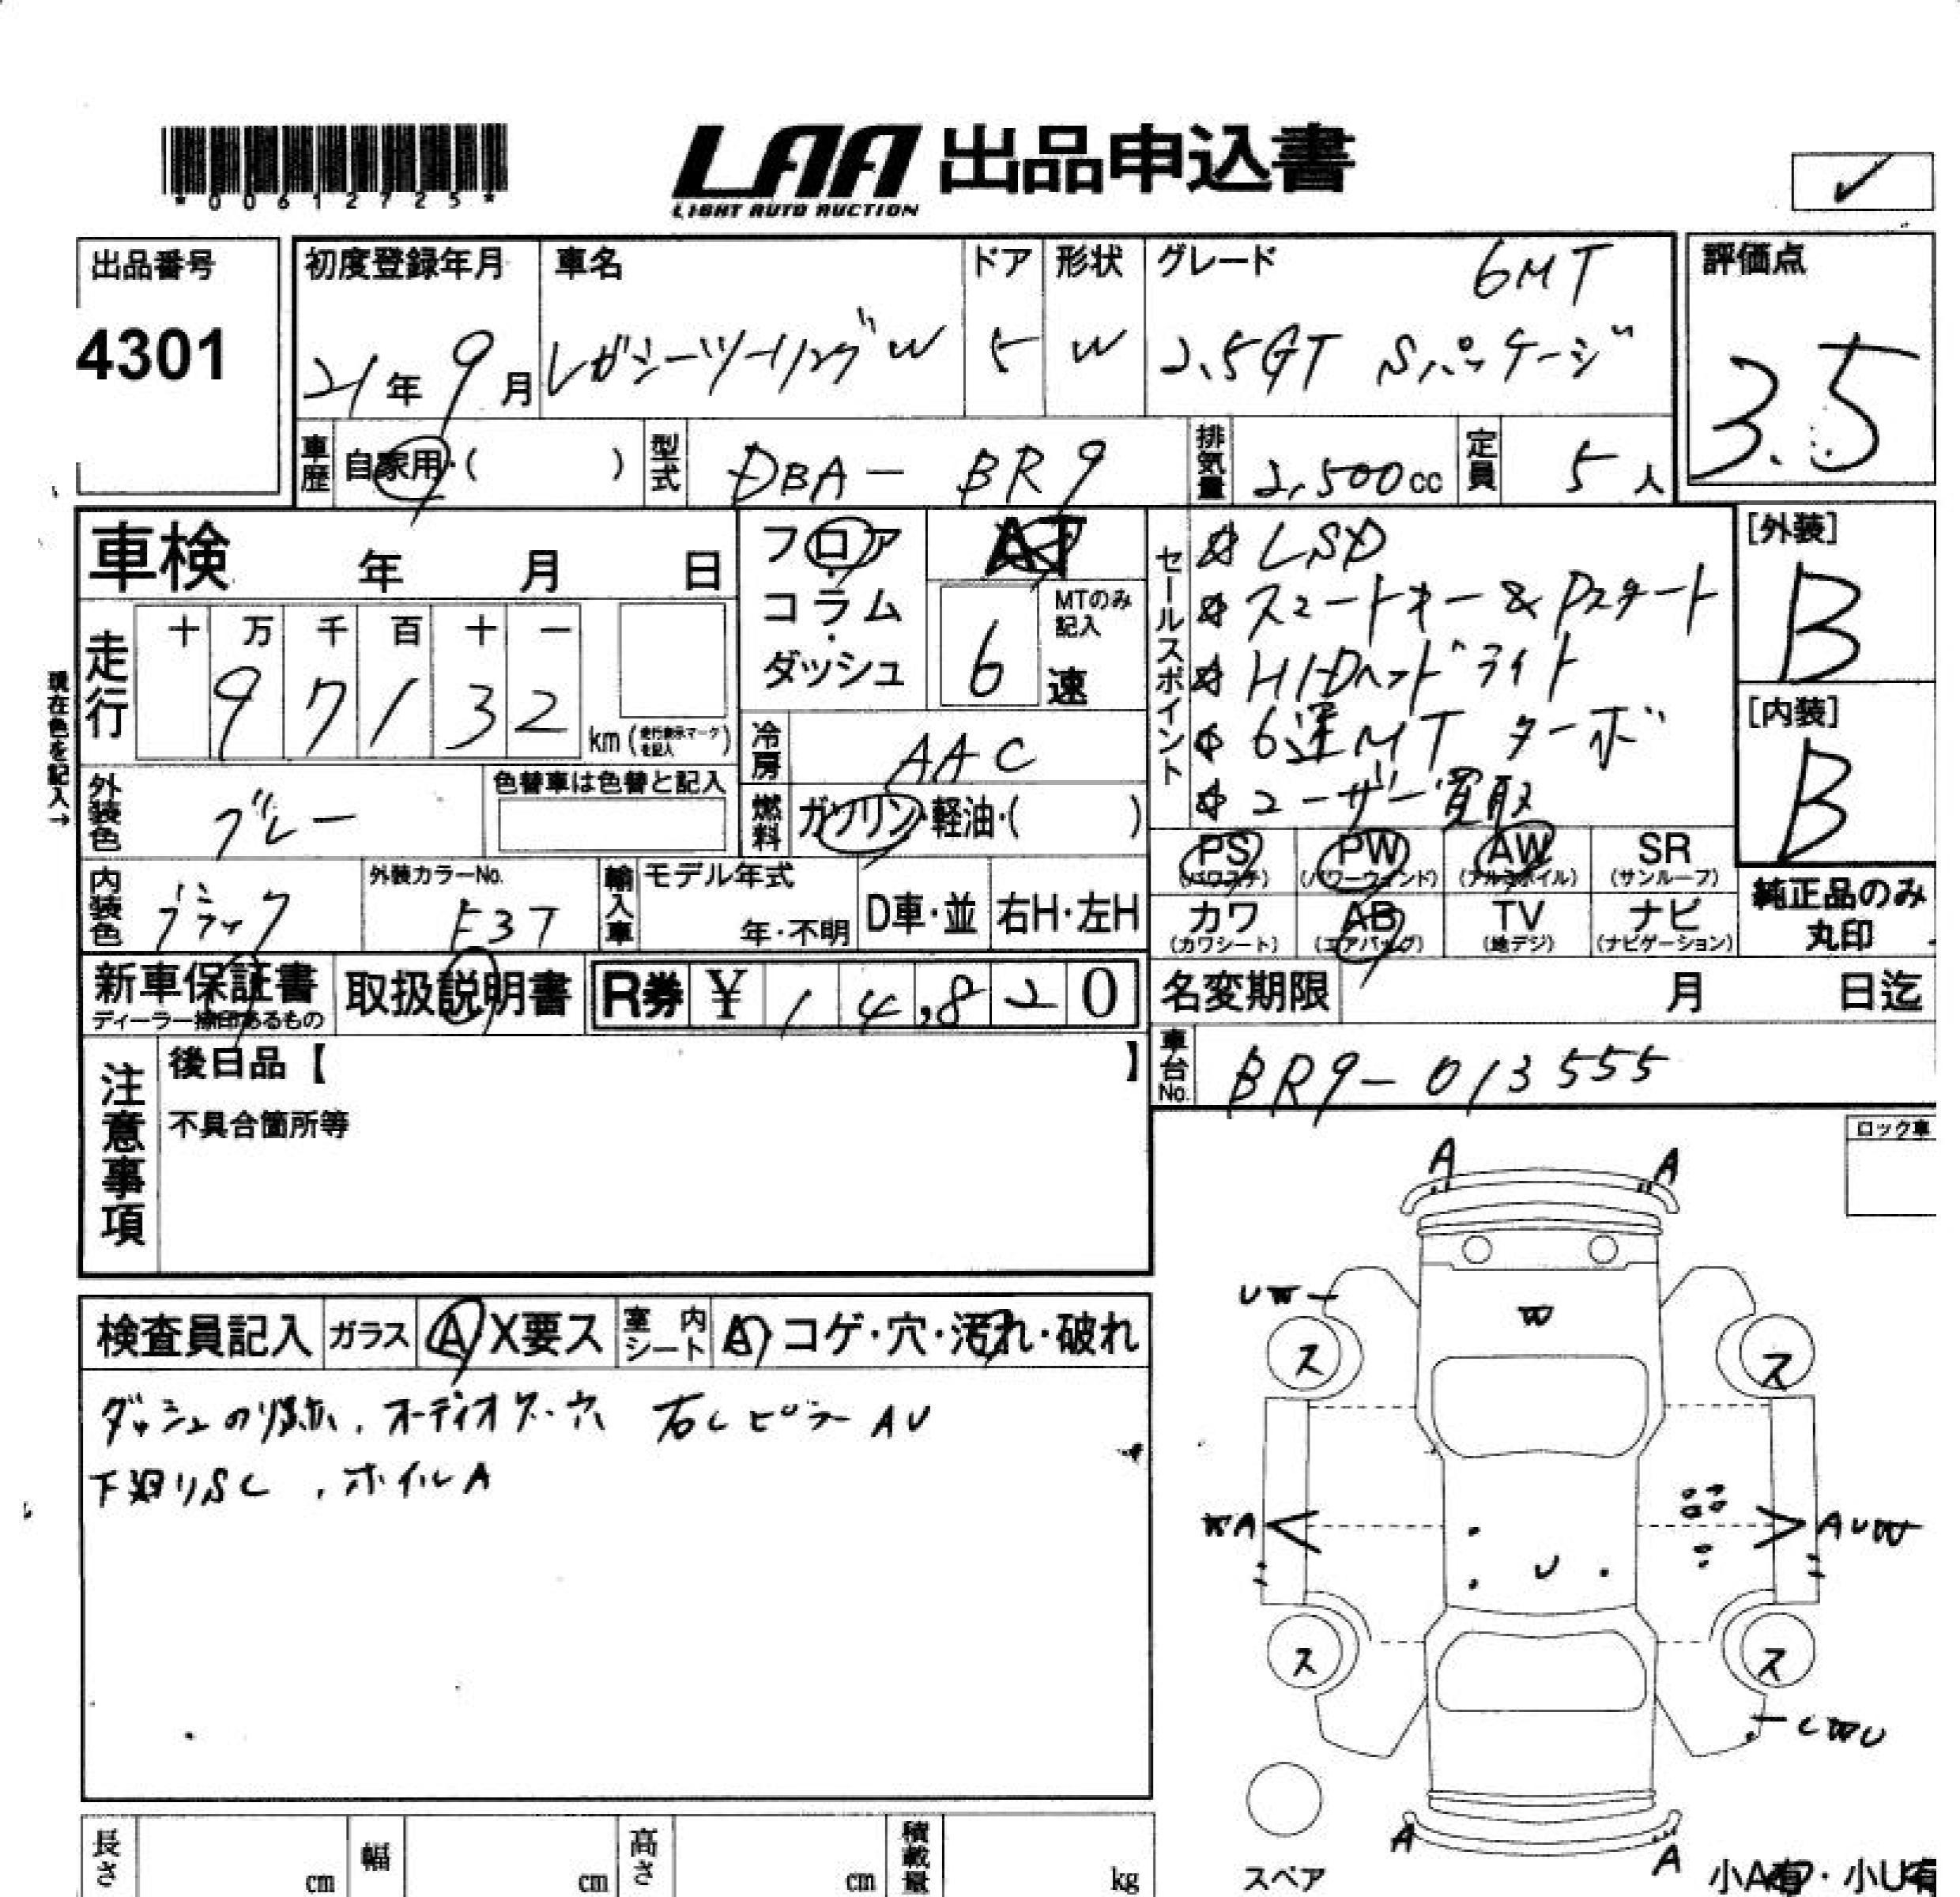 *00612725*
LAA 出品申込書
LIGHT AUTO AUCTION
✓
出品番号
4301
初度登録年月
21年 9月
車名
レガシーツーリングW
ドア
5
形状
W
グレード 6MT
2.5GT Sパッケージ
評価点
3.5
車歴 自家用・( )
型式 DBA- BR9
排気量 2,500cc
定員 5人
車検 年 月 日
走行 十 万 千 百 十 一
9 7 1 3 2 km (走行表示マークを記入)
現在色を記入→
フロア・コラム・ダッシュ
AT
6 MTのみ記入 速
冷房 AAC
燃料 ガソリン・軽油・( )
セールスポイント
☆ LSD
☆ スマートキー&Pスタート
☆ HIDヘッドライト
☆ 6速MT ターボ
☆ ユーザー買取
[外装]
B
[内装]
B
外装色 グレー
色替車は色替と記入
内装色 ブラック
外装カラーNo.
F37
輸入車 モデル年式
年・不明
D車・並 右H・左H
PS (パワステ) PW (パワーウィンド) AW (アルミホイル) SR (サンルーフ)
カワ (カワシート) AB (エアバッグ) TV (地デジ) ナビ (ナビゲーション)
純正品のみ丸印
新車保証書
ディーラー捺印あるもの
取扱説明書
R券 ¥ 14,820
名変期限 月 日迄
車台No. BR9-013555
注意事項
後日品【 】
不具合箇所等
ロック車
検査員記入 ガラス A X要ス 室内シート A コゲ・穴・汚れ・破れ
ダッシュのり跡、オーディオ 穴 右Cピラー AU
下廻りSC、ホイルA
A A
UW
W
ス ス
WA AUW
U
ス ス
CWU
A A
スペア
小A有・小U有
長さ cm 幅 cm 高さ cm 積載量 kg